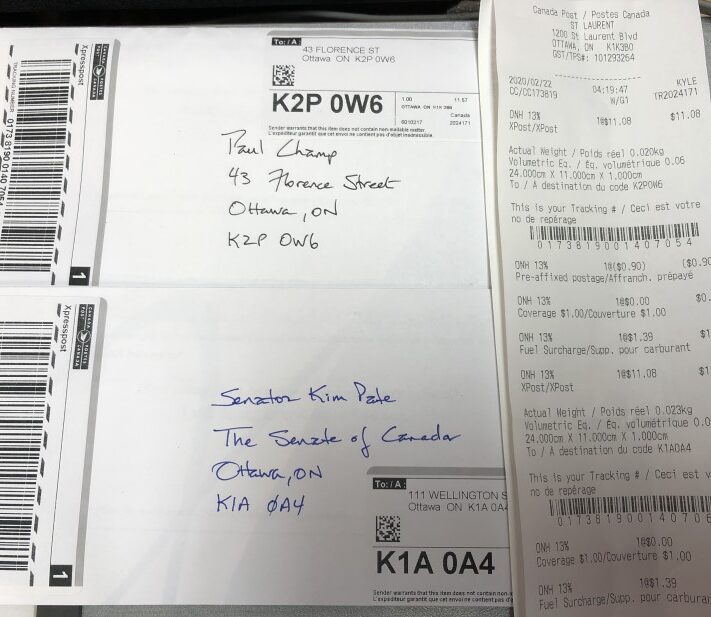 Xpresspost
CANADA POST POSTES CANADA
TRACKING NUMBER
0173 8190 0140 7054
1
To: / A:
43 FLORENCE ST
Ottawa ON K2P 0W6
K2P 0W6
1.00 11 57
OTTAWA ON K1K 3B0
Canada
6010217 2024171
Sender warrants that this item does not contain non-mailable matter.
L'expéditeur garantit que cet envoi ne contient pas d'objet inadmissible.
Paul Champ
43 Florence Street
Ottawa, ON
K2P 0W6
Xpresspost
CANADA POST POSTES CANADA
1
Senator Kim Pate
The Senate of Canada
Ottawa, ON
K1A 0A4
To: / A:
111 WELLINGTON S
Ottawa ON K1A 0A4
K1A 0A4
Sender warrants that this item does not contain non
L'expéditeur garantit que cet envoi ne contient pas d
Canada Post / Postes Canada
ST LAURENT
1200 St Laurent Blvd
OTTAWA, ON K1K3B0
GST/TPS#: 101293264
2020/02/22 04:19:47 KYLE
CC/CC173819 W/G1 TR2024171
ONH 13% 1@$11.08 $11.08
XPost/XPost
Actual Weight / Poids réel 0.020kg
Volumetric Eq. / Éq. volumétrique 0.06
24.000cm X 11.000cm X 1.000cm
To / A destination du code K2P0W6
This is your Tracking # / Ceci est votre
no de repérage
0173819001407054
ONH 13% 1@($0.90) ($0.90
Pre-affixed postage/Affranch. prépayé
ONH 13% 1@$0.00 $0.
Coverage $1.00/Couverture $1.00
ONH 13% 1@$1.39 $1
Fuel Surcharge/Supp. pour carburant
ONH 13% 1@$11.08 $1
XPost/XPost
Actual Weight / Poids réel 0.023kg
Volumetric Eq. / Éq. volumétrique 0.0
24.000cm X 11.000cm X 1.000cm
To / A destination du code K1A0A4
This is your Tracking # / Ceci est v
no de repérage
017381900140706
ONH 13% 1@$0.00
Coverage $1.00/Couverture $1.00
ONH 13% 1@$1.39
Fuel Surcharge/Supp. pour carburan